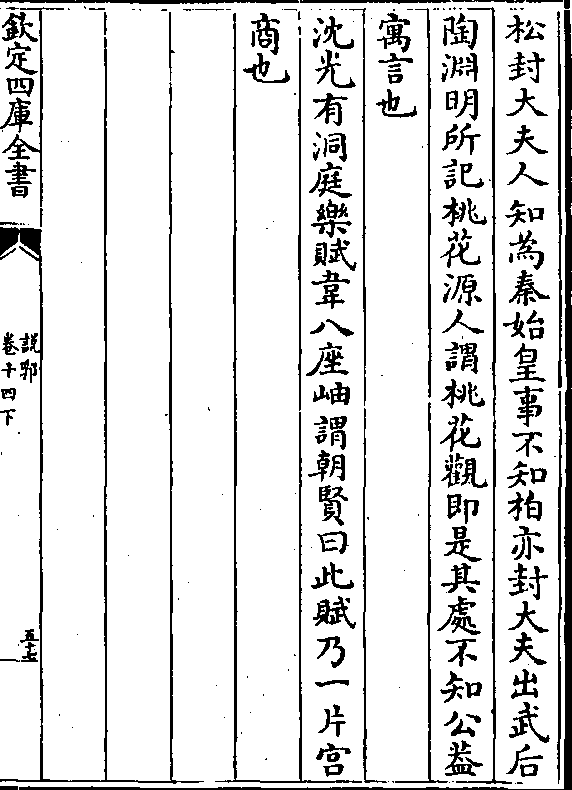 松封大夫人知為秦始皇事不知柏亦封大夫出武后
陶淵明所記桃花源人謂桃花觀即是其處不知公葢
寓言也
沈光有洞庭樂賦韋八座岫謂朝賢曰此賦乃一片宫
商也
欽定四庫全書
說郛
卷十四下
五十七